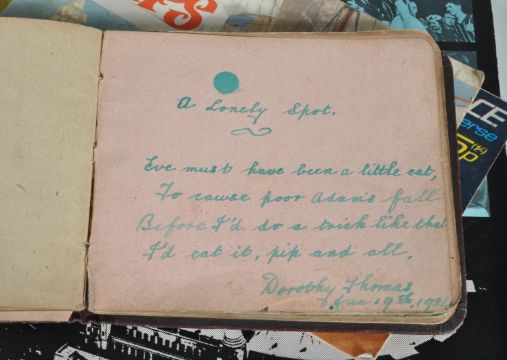 A Lonely Spot.
Eve must have been a little cat,
To cause poor Adam's fall
Before I'd do a trick like that
I'd eat it, pip and all,
Dorothy Thomas
Jan 19th, 192
CE
erse
op